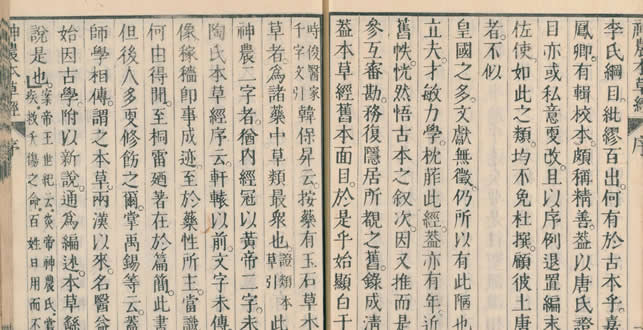 李氏綱目紕繆百出。何有於古本乎。嘉
鳳卿有輯校本。頗稱精善。葢以唐氏證
目亦或私意更改。且以序例退置編末
佐使。如此之類。均不免杜撰。顧彼土唐
者。不似
皇國之多。文獻無徵。仍所以有此陋也
立夫才敏力學。枕葄此經。葢亦有年。近
舊帙。恍然悟古本之叙次。因又推而是
參互審勘。務復隱居所覩之舊。錄成清
葢本草經舊本面目。於是乎始顯白于
時俊醫家
千字文引
韓保昇云。按藥有玉石草木
草者。為諸藥中草類最衆也。
證類本
草引
此
神農二字者。猶內經冠以黃帝二字。未
陶氏本草經序云。軒轅以前。文字未傳
像。稼穡即事成迹。至於藥性所主。當識
何由得聞。至桐雷廼著在於篇簡。此書
但後人多更修飭之爾。掌禹錫等云。葢
師學相傳。謂之本草。兩漢以來。名醫益
始因古學。附以新說。通為編述。本草繇
說是也。
案帝王世紀云。炎帝神農氏。嘗
疾。救夭傷之命。百姓日用而不
神農本草經 序